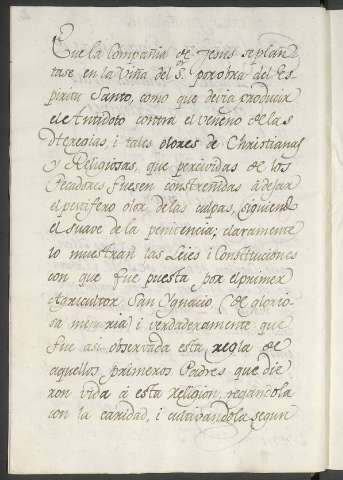 Que la Compañia de Jesus se plan
tase en la Viña del S.r por obra del Es
piritu Santo, como que devia producir
el Antidoto contra el veneno de las
Heregias, i tales olores de Christianas
y Religiosas, que percividas de los
Pecadores fuesen constrenidas a dejar
el pestifero olor de las culpas, siguiend
el suave de la penitencia; claramente
lo muestran las Leies i Constituciones
con que fue puesta por el primer
Agricultor San Ygnacio, (de glorio
sa memoria) i verdaderamente que
fue asi observada esta regla de
aquellos primeros Padres que die
ron vida á esta religion, regandola
con la caridad, i cultivandola segun